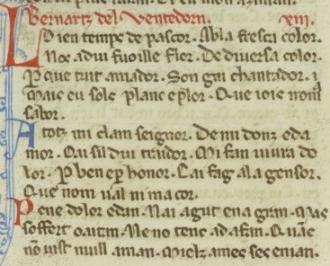 Bernartz del Ventedorn. XIII.
Lo dien temps de pascor. Abla fresca color.
Nos adui fuoille flor. De diversa color.
P que tuit amador. Son gai chantador.
Mais eu sols planc e plor. Que ioie nom
sabor.
A totz mi clam seignor. De mi donz e da
mor. Qai sil dui traidor. Mi fan viura do
lor. P ben e p honor. Cai faig ala gensor.
Que nom val ni ma cor.
Pene dolor e dan. Nai agut en a gran. Mas
soffert o aitan. No o tenc ad afan. Qanc
no vist null aman. Meilz ames ses enian.